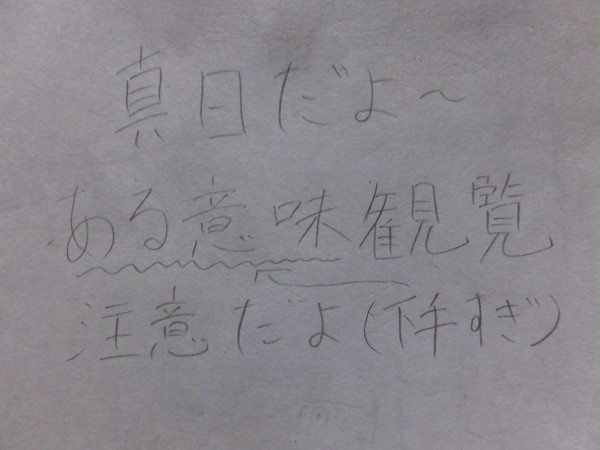 真日だよ～
ある意味観覧
注意だよ(下手すぎ)